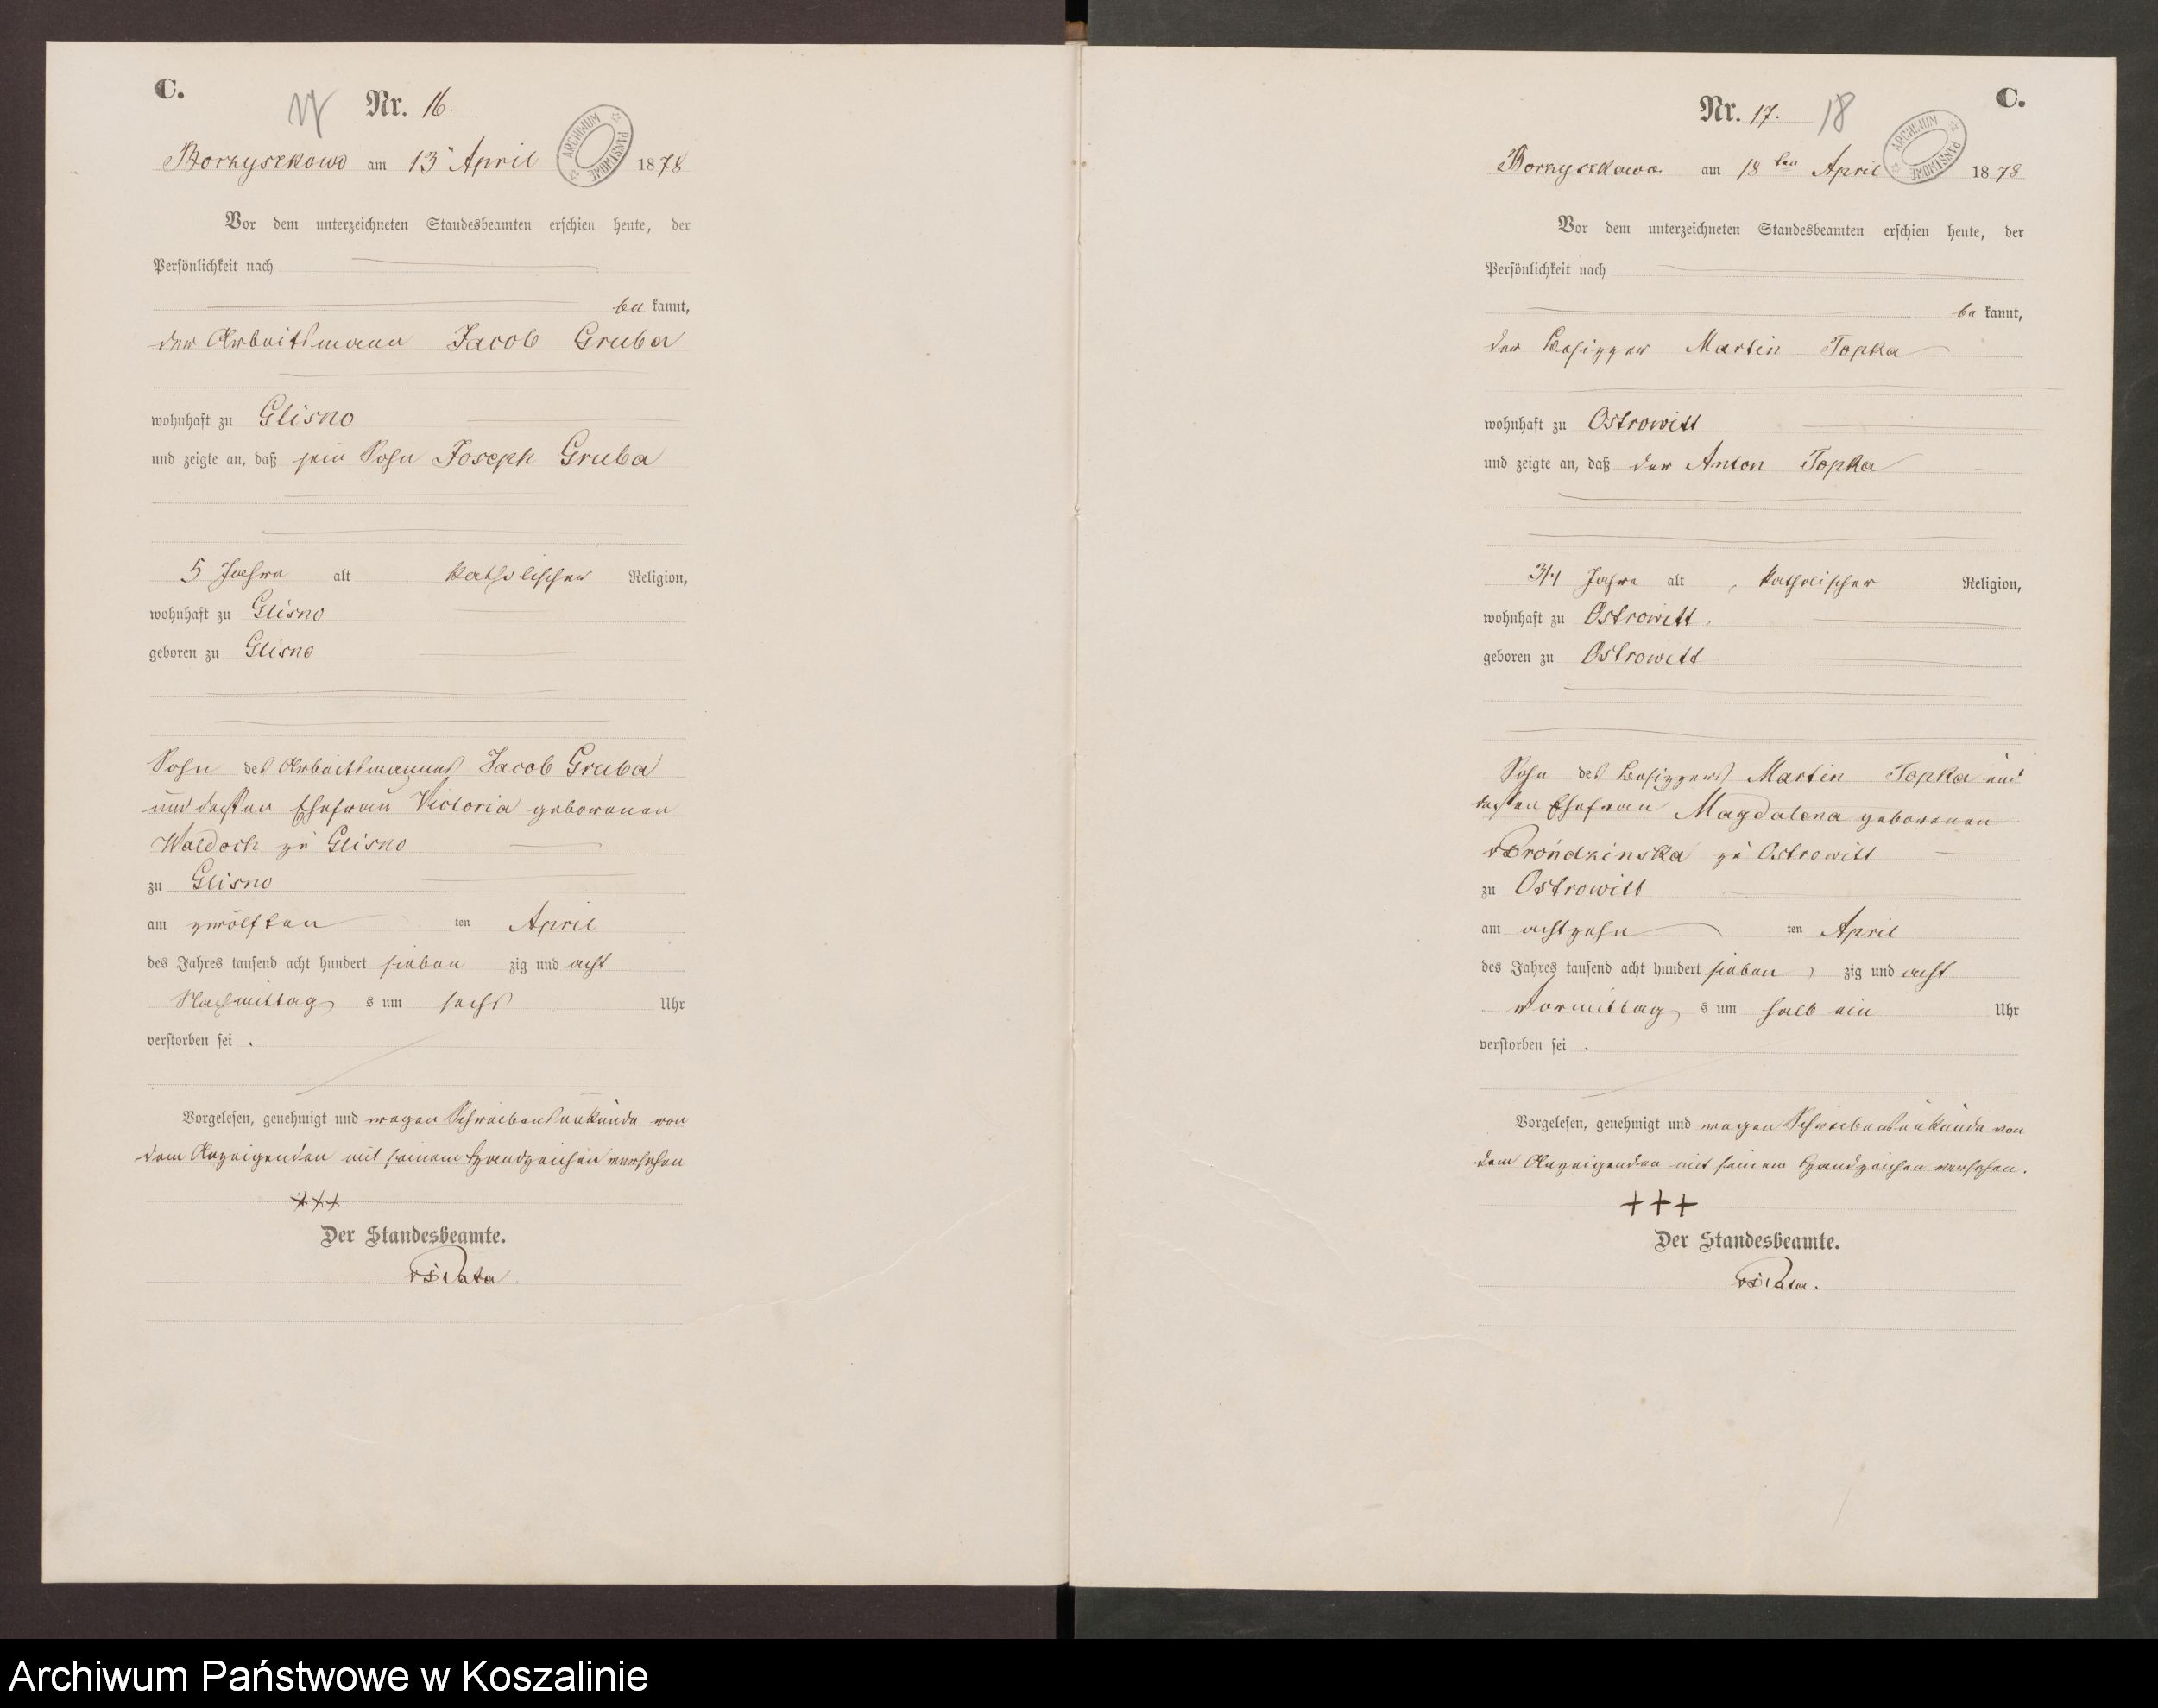 C.
Nr. 16.
ARCHIWUM PAŃSTWOWE
Borzyszkowo am 13 April 1878
Vor dem unterzeichneten Standesbeamten erschien heute, der
Persönlichkeit nach
be kannt,
der Arbeitsmann Jacob Gruba
wohnhaft zu Glisno
und zeigte an, daß sein Sohn Joseph Gruba
5 Jahre alt katholischer Religion,
wohnhaft zu Glisno
geboren zu Glisno
Sohn des Arbeitsmannes Jacob Gruba
und dessen Ehefrau Victoria geborenen
Waldoch zu Glisno
zu Glisno
am zwölften ten April
des Jahres tausend acht hundert sieben zig und acht
Nachmittag s um sechs Uhr
verstorben sei .
Vorgelesen, genehmigt und wegen Schreibensunkunde von
dem Anzeigenden mit seinem Handzeichen versehen
+++
Der Standesbeamte.
C.
Nr. 17. 18
ARCHIWUM PAŃSTWOWE
Borzyszkowo am 18 ten April 1878
Vor dem unterzeichneten Standesbeamten erschien heute, der
Persönlichkeit nach
be kannt,
der Besitzer Martin Topka
wohnhaft zu Ostrowitt
und zeigte an, daß der Anton Topka
3/4 Jahre alt, katholischer Religion,
wohnhaft zu Ostrowitt.
geboren zu Ostrowitt
Sohn des Besitzers Martin Topka und
dessen Ehefrau Magdalena geborenen
Prondzinska zu Ostrowitt
zu Ostrowitt
am achtzehn ten April
des Jahres tausend acht hundert sieben zig und acht
Vormittag s um halb ein Uhr
verstorben sei .
Vorgelesen, genehmigt und wegen Schreibensunkunde von
dem Anzeigenden mit seinem Handzeichen versehen.
+++
Der Standesbeamte.
Archiwum Państwowe w Koszalinie